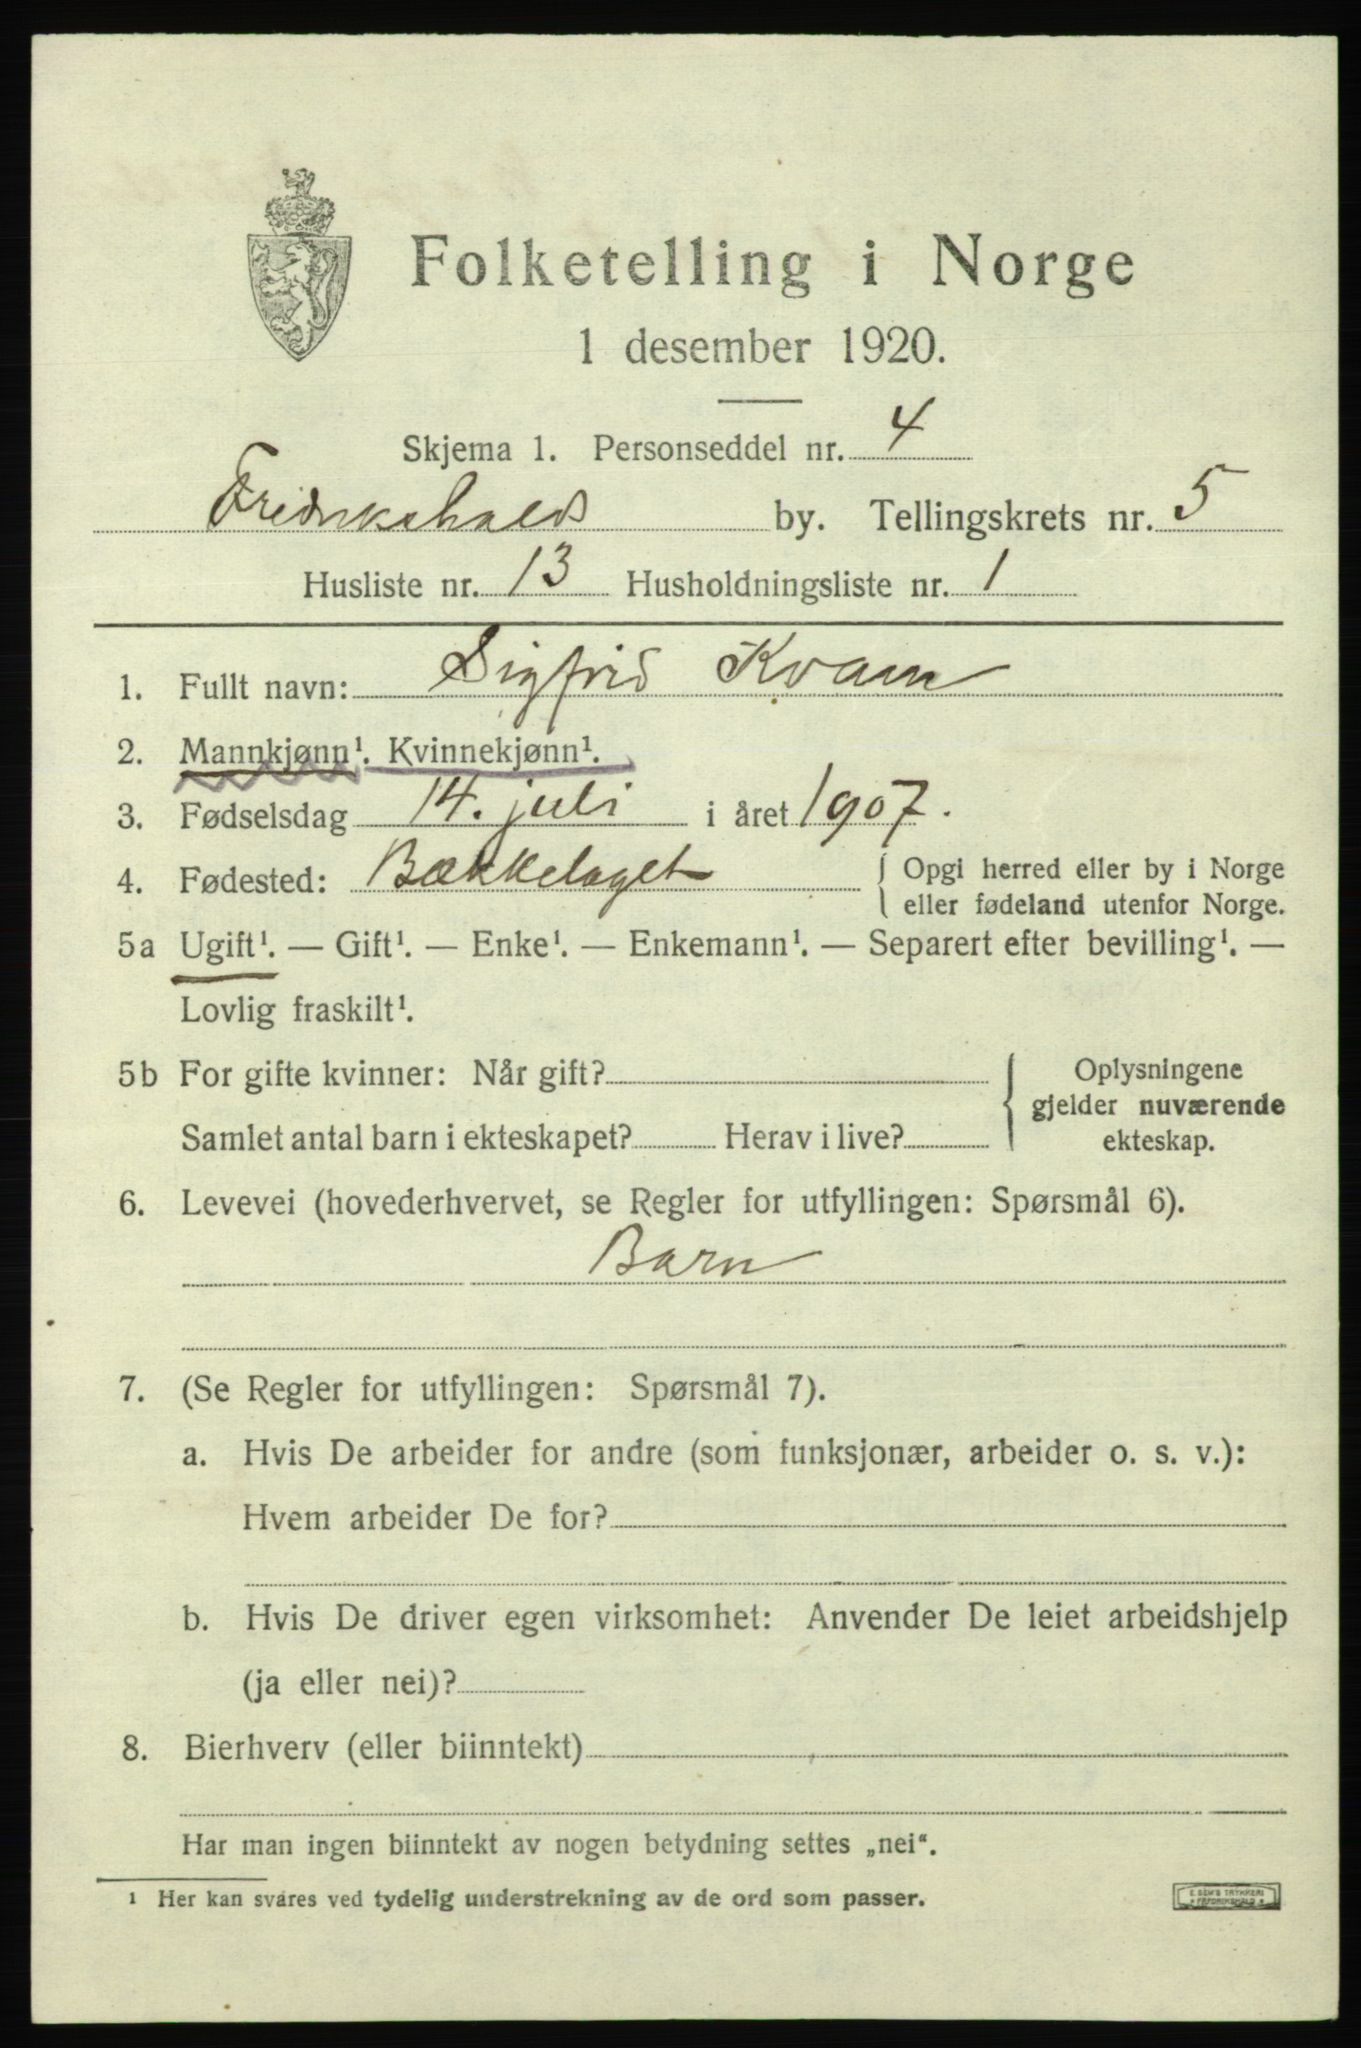 Folketelling i Norge
1 desember 1920.
Skjema 1. Personseddel nr. 4
Fredrikshalds by. Tellingskrets nr. 5
Husliste nr. 13 Husholdningsliste nr. 1
1. Fullt navn: Sigfrid Kvam
2. Mannkjønn¹. Kvinnekjønn¹.
3. Fødselsdag 14. juli i året 1907.
4. Fødested: Bækkelaget { Opgi herred eller by i Norge
eller fødeland utenfor Norge.
5a Ugift¹. — Gift¹. — Enke¹. — Enkemann¹. — Separert efter bevilling¹. —
Lovlig fraskilt¹.
5b For gifte kvinner: Når gift? { Oplysningene
gjelder nuværende
Samlet antal barn i ekteskapet? Herav i live? ekteskap.
6. Levevei (hovederhvervet, se Regler for utfyllingen: Spørsmål 6).
Barn
7. (Se Regler for utfyllingen: Spørsmål 7).
a. Hvis De arbeider for andre (som funksjonær, arbeider o. s. v.):
Hvem arbeider De for?
b. Hvis De driver egen virksomhet: Anvender De leiet arbeidshjelp
(ja eller nei)?
8. Bierhverv (eller biinntekt)
Har man ingen biinntekt av nogen betydning settes „nei“.
¹ Her kan svares ved tydelig understrekning av de ord som passer.
E. SEM'S TRYKKERI
FREDRIKSHALD